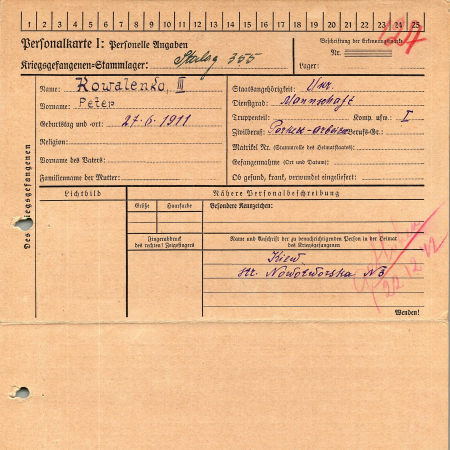 1 2 3 4 5 6 7 8 9 10 11 12 13 14 15 16 17 18 19 20 21 22 23 24 25
Personalkarte I: Personelle Angaben
Kriegsgefangenen-Stammlager: Stalag 355
Beschriftung der Erkennungsmarke
Nr.
Lager:
Des Kriegsgefangenen
Name: Kowalenko, III
Vorname: Peter
Geburtstag und -ort: 27.6.1911
Religion:
Vorname des Vaters:
Familienname der Mutter:
Staatsangehörigkeit: Ukr.
Dienstgrad: Mannschaft
Truppenteil: Komp. usw.: I
Zivilberuf: Berufs-Gr.:
Matrikel Nr. (Stammrolle des Heimatstaates):
Gefangennahme (Ort und Datum):
Ob gesund, krank, verwundet eingeliefert:
Lichtbild
Nähere Personalbeschreibung
Größe
Haarfarbe
Besondere Kennzeichen:
Fingerabdruck
des rechten! Zeigefingers
Name und Anschrift der zu benachrichtigenden Person in der Heimat
des Kriegsgefangenen
Kiew
Str. Nowotworska N3
22.12.42
Wenden!